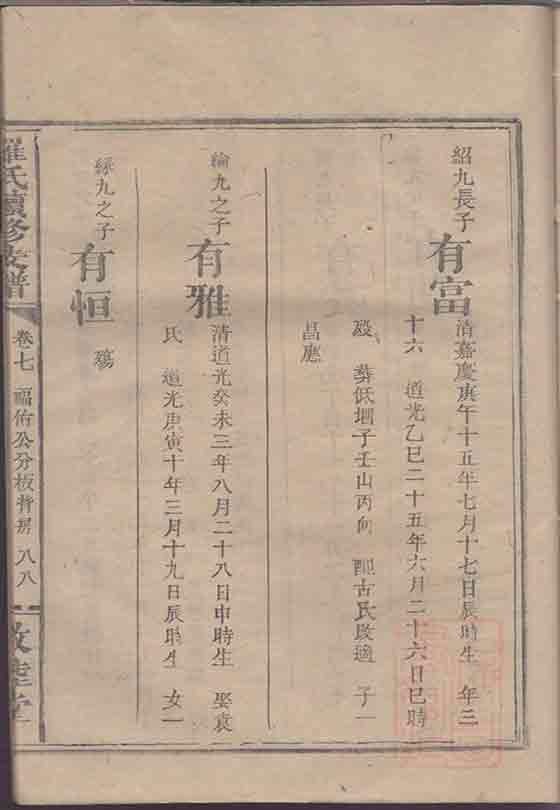 紹九長子
有富
清嘉慶庚午十五年七月十七日辰時生 年三
十六 道光乙巳二十五年六月二十六日巳時
殁 葬低壋子壬山丙向 配古氏改適 子一
昌應
綸九之子
有雅
清道光癸未三年八月二十八日申時生 娶袁
氏 道光庚寅十年三月十九日辰時生 女一
綵九之子
有恒
殤
羅氏續修支譜
卷七 福佑公分板背房 八八
敦睦堂